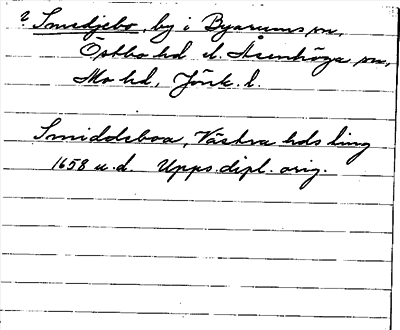 ? Smedjebo, by i Byarums sn,
Östbo hd el. Åsenhöga sn,
Mo hd, Jönk. l.
Smiddoboa, Västra hds ting
1658 u.d. Upps. dipl. orig.